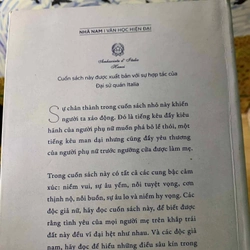 NHÃ NAM | VĂN HỌC HIỆN ĐẠI
Ambasciata d'Italia
Hanoi
Cuốn sách này được xuất bản với sự hợp tác của
Đại sứ quán Italia
Sự chân thành trong cuốn sách nhỏ này khiến
người ta xáo động. Đó là tiếng kêu đầy kiêu
hãnh của người phụ nữ muốn phá bỏ lề thói, một
tiếng kêu man dại nhưng cũng đầy yêu thương
của người phụ nữ trước ngưỡng cửa được làm mẹ.
Trong cuốn sách này có tất cả các cung bậc cảm
xúc: niềm vui, sự âu yếm, nỗi tuyệt vọng, cơn
thịnh nộ, nỗi buồn, sự âu lo và niềm hy vọng. Các
độc giả nữ, hãy đọc cuốn sách này, để biết được
rằng tình yêu của mọi người mẹ trên khắp trái
đất này đều vĩ đại hệt như nhau. Và các độc giả
nam, hãy đọc để hiểu những điều sâu kín trong